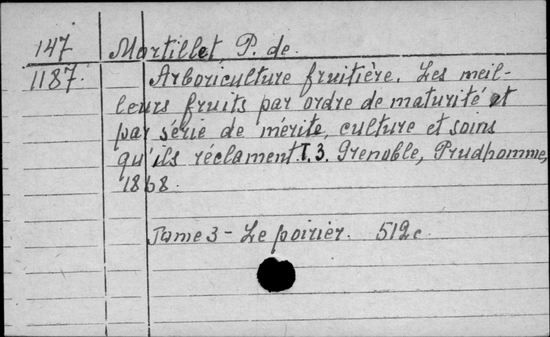 147 Mortillet, P. de.
1187. Arboriculture fruitière. Les meil-
leurs fruits par ordre de maturité et
par série de mérite, culture et soins
qu'ils réclament. T. 3. Grenoble, Prudhomme,
1868.
Tome 3 - Le poirier. 512 c.